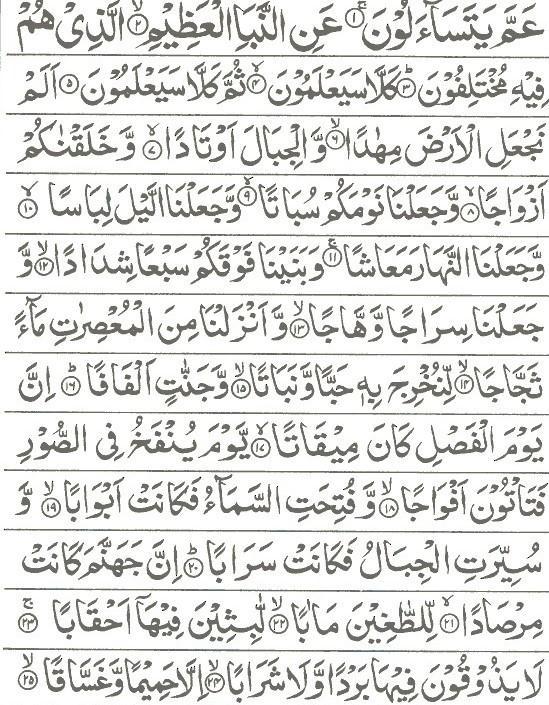 عَمَّ یَتَسَآءَلُوْنَ ۚ﴿۱﴾ عَنِ النَّبَاِ الْعَظِیْمِ ۙ﴿۲﴾ الَّذِیْ هُمْ
فِیْهِ مُخْتَلِفُوْنَ ؕ﴿۳﴾ كَلَّا سَیَعْلَمُوْنَ ۙ﴿۴﴾ ثُمَّ كَلَّا سَیَعْلَمُوْنَ ﴿۵﴾ اَلَمْ
نَجْعَلِ الْاَرْضَ مِهٰدًا ۙ﴿۶﴾ وَّ الْجِبَالَ اَوْتَادًا ۪ۙ﴿۷﴾ وَّ خَلَقْنٰكُمْ
اَزْوَاجًا ۙ﴿۸﴾ وَّ جَعَلْنَا نَوْمَكُمْ سُبَاتًا ۙ﴿۹﴾ وَّ جَعَلْنَا الَّیْلَ لِبَاسًا ۙ﴿۱۰﴾
وَّ جَعَلْنَا النَّهَارَ مَعَاشًا ۪﴿۱۱﴾ وَ بَنَیْنَا فَوْقَكُمْ سَبْعًا شِدَادًا ۙ﴿۱۲﴾ وَّ
جَعَلْنَا سِرَاجًا وَّهَّاجًا ۪ۙ﴿۱۳﴾ وَّ اَنْزَلْنَا مِنَ الْمُعْصِرٰتِ مَآءً
ثَجَّاجًا ۙ﴿۱۴﴾ لِّنُخْرِجَ بِهٖ حَبًّا وَّ نَبَاتًا ۙ﴿۱۵﴾ وَّ جَنّٰتٍ اَلْفَافًا ؕ﴿۱۶﴾ اِنَّ
یَوْمَ الْفَصْلِ كَانَ مِیْقَاتًا ۙ﴿۱۷﴾ یَّوْمَ یُنْفَخُ فِی الصُّوْرِ
فَتَاْتُوْنَ اَفْوَاجًا ۙ﴿۱۸﴾ وَّ فُتِحَتِ السَّمَآءُ فَكَانَتْ اَبْوَابًا ۙ﴿۱۹﴾ وَّ
سُیِّرَتِ الْجِبَالُ فَكَانَتْ سَرَابًا ؕ﴿۲۰﴾ اِنَّ جَهَنَّمَ كَانَتْ
مِرْصَادًا ۪ۙ﴿۲۱﴾ لِّلطّٰغِیْنَ مَاٰبًا ۙ﴿۲۲﴾ لّٰبِثِیْنَ فِیْهَاۤ اَحْقَابًا ۚ﴿۲۳﴾
لَا یَذُوْقُوْنَ فِیْهَا بَرْدًا وَّ لَا شَرَابًا ۙ﴿۲۴﴾ اِلَّا حَمِیْمًا وَّ غَسَّاقًا ۙ﴿۲۵﴾